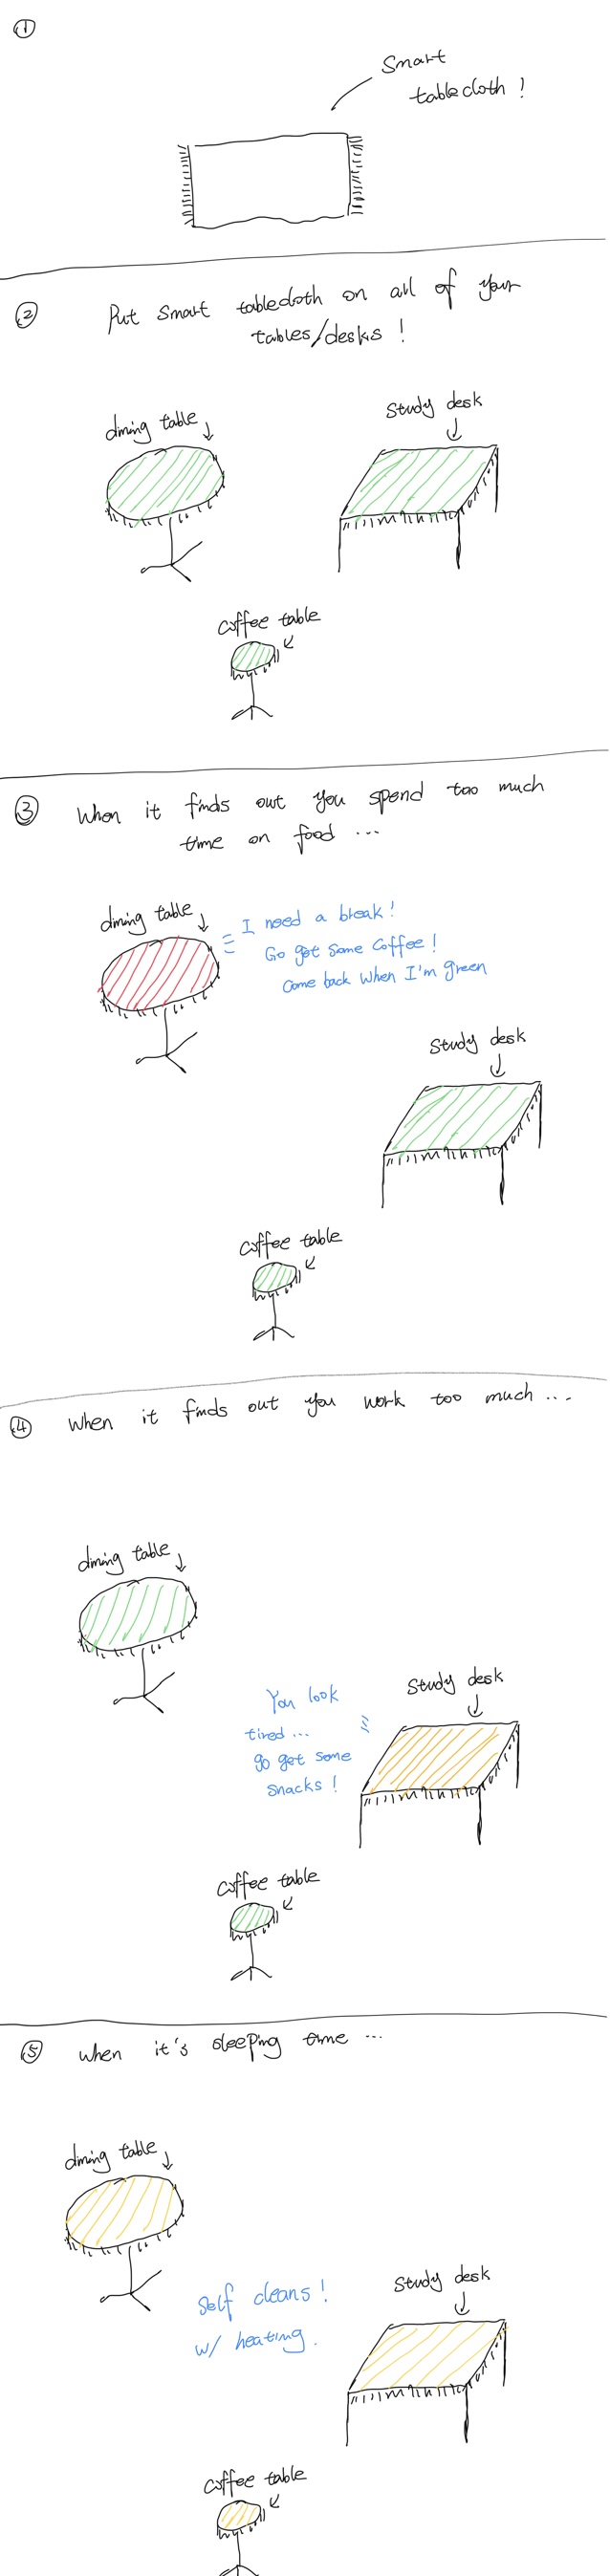 ①
Smart
tablecloth !
② Put smart tablecloth on all of your
tables/desks !
dining table
study desk
coffee table
③ When it finds out you spend too much
time on food ...
dining table
I need a break!
Go get some coffee!
Come back when I'm green
study desk
coffee table
④ when it finds out you work too much ...
dining table
study desk
You look
tired...
go get some
snacks !
coffee table
⑤ when it's sleeping time ...
dining table
study desk
Self cleans !
w/ heating.
coffee table